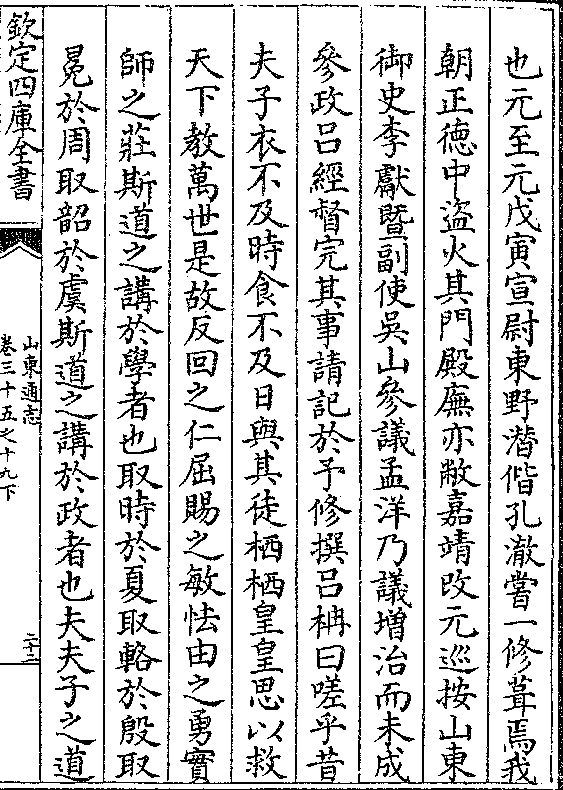 也元至元戊寅宣尉東野潛偕孔澈嘗一修葺焉我
朝正德中盜火其門殿廡亦敝嘉靖改元巡按山東
御史李獻暨副使吳山參議孟洋乃議增治而未成
參政呂經督完其事請記於予修撰呂柟曰嗟乎昔
夫子衣不及時食不及日與其徒栖栖皇皇思以救
天下教萬世是故反回之仁屈賜之敏怯由之勇實
師之莊斯道之講於學者也取時於夏取輅於殷取
冕於周取韶於虞斯道之講於政者也夫夫子之道
欽定四庫全書
山東通志
卷三十五之十九下
二十二